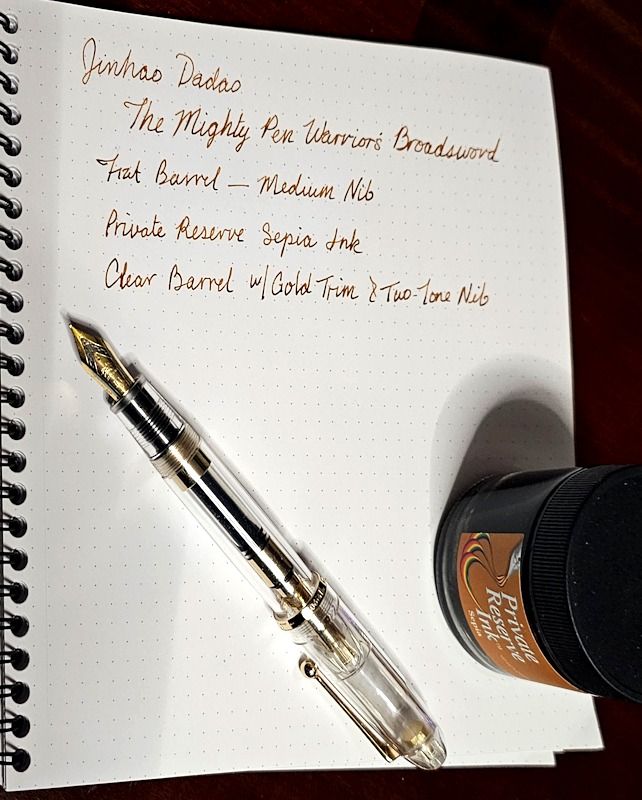 Jinhao Dadao
The Mighty Pen Warrior's Broadsword
Fat Barrel — Medium Nib
Private Reserve Sepia Ink
Clear Barrel w/ Gold Trim & Two-Tone Nib
Private
Reserve
Ink
Sepia